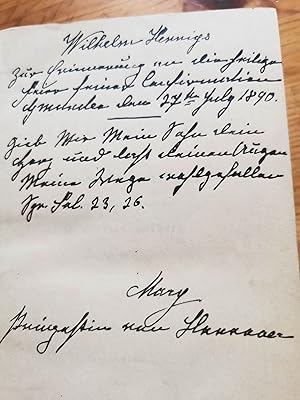 Wilhelm Hennigs
Zur Erinnerung an die heilige
Feier seiner Confirmation
Gmunden den 27ten July 1890.
Gieb Mir Mein Sohn dein
Herz und laß deinen Augen
Meine Wege wohlgefallen
Spr. Sal. 23, 26.
Mary
Prinzessin von Hannover